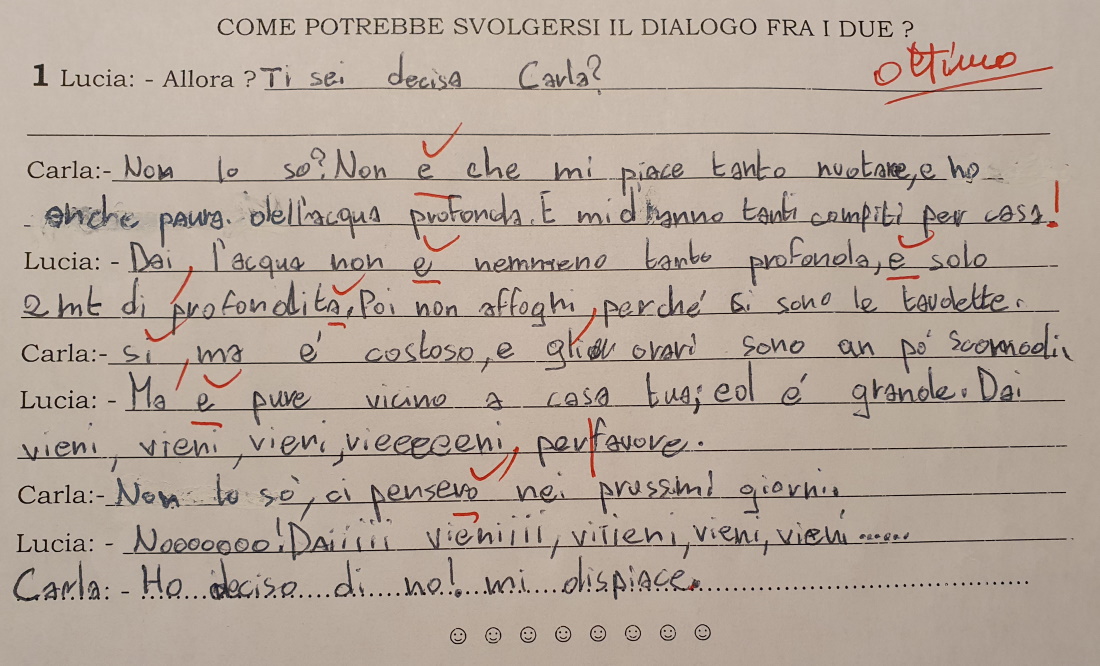 COME POTREBBE SVOLGERSI IL DIALOGO FRA I DUE ?
ottimo
1 Lucia: - Allora ? Ti sei decisa Carla?
Carla:- Non lo so? Non e che mi piace tanto nuotare, e ho
anche paura. dell'acqua profonda. È mi danno tanti compiti per casa!
Lucia: - Dai, l'acqua non e nemmeno tanto profonda, e solo
2 mt di profondita, Poi non affoghi, perché si sono le tavolette.
Carla:- si, ma é costoso, e gli orari sono un pó scomodi.
Lucia: - Ma e pure vicino a casa tua; ed é grande. Dai
vieni, vieni, vieni, vieeeeeni, perfavore.
Carla:- Non lo so, ci pensero nei prossimi giorni.
Lucia: - Nooooooo! Daiiiiii vieniiii, viiieni, vieni, vieni ......
Carla: - Ho deciso di no! mi dispiace.